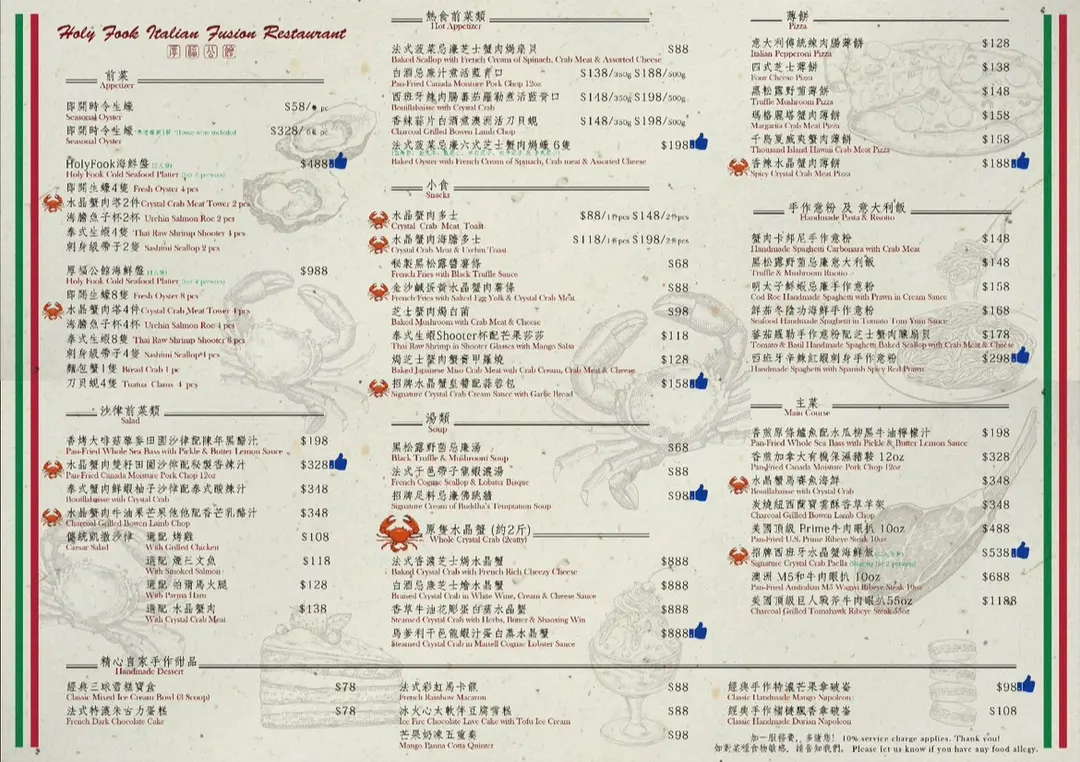 Holy Fook Italian Fusion Restaurant
厚福公館
前菜
Appetizer
即開時令生蠔 $58/ pc
Seasonal Oyster
即開時令生蠔 $328/ pc
Seasonal Oyster
HolyFook海鮮盤 $488
Holy Fook Cold Seafood Platter
即開生蠔4隻 Fresh Oyster 4 pcs
水晶蟹肉塔2件Crystal Crab Meat Tower 2 pcs
海膽魚子杯2杯 Urchin Salmon Roe 2 pcs
泰式生蝦4隻 Thai Raw Shrimp Shooter 4 pcs
刺身級帶子2隻 Sashimi Scallop 2 pcs
厚福公館海鮮盤 $988
Holy Fook Cold Seafood Platter
即開生蠔8隻 Fresh Oyster 8 pcs
水晶蟹肉塔4件Crystal Crab Meat Tower 4pcs
海膽魚子杯4杯 Urchin Salmon Roe 4 pcs
泰式生蝦8隻 Thai Raw Shrimp Shooter 8 pcs
刺身級帶子4隻 Sashimi Scallop4 pcs
麵包蟹1隻 Bread Crab 1 pc
刀貝蜆4隻 Tuatua Clams 4 pcs
沙律前菜類
Salad
香烤大啡菇藜麥田園沙律配陳年黑醋汁 $198
Pan-Fried Whole Sea Bass with Pickle & Butter Lemon Sauce
水晶蟹肉雙籽田園沙律配秘製香辣汁 $328
Pan-Fried Canada Moisture Pork Chop 12oz
泰式蟹肉鮮蝦柚子沙律配泰式酸辣汁 $348
Bouillabaisse with Crystal Crab
水晶蟹肉牛油果芒果他他配香芒乳酪汁 $348
Charcoal Grilled Bowen Lamb Chop
傳統凱撒沙律 選配 烤雞 $108
Caesar Salad With Grilled Chicken
選配 煙三文魚 $118
With Smoked Salmon
選配 帕爾馬火腿 $128
With Parma Ham
選配 水晶蟹肉 $138
With Crystal Crab Meat
熱食前菜類
Hot Appetizer
法式菠菜忌廉芝士蟹肉焗扇貝 $88
Baked Scallop with French Cream of Spinach, Crab Meat & Assorted Cheese
白酒忌廉汁煮活藍青口 $138/350g $188/500g
Pan-Fried Canada Moisture Pork Chop 12oz
西班牙辣肉腸蕃茄羅勒煮活藍青口 $148/350g $198/500g
Bouillabaisse with Crystal Crab
香辣蒜片白酒煮澳洲活刀貝蜆 $148/350g $198/500g
Charcoal Grilled Bowen Lamb Chop
法式菠菜忌廉六式芝士蟹肉焗蠔 6隻 $198
Baked Oyster with French Cream of Spinach, Crab meat & Assorted Cheese
小食
Snacks
水晶蟹肉多士 $88/1件pcs $148/2件pcs
Crystal Crab Meat Toast
水晶蟹肉海膽多士 $118/1件pcs $198/2件pcs
Crystal Crab Meat & Urchin Toast
秘製黑松露醬薯條 $68
French Fries with Black Truffle Sauce
金沙鹹蛋黃水晶蟹肉薯條 $88
French Fries with Salted Egg Yolk & Crystal Crab Meat
芝士蟹肉焗白菌 $98
Baked Mushroom with Crab Meat & Cheese
泰式生蝦Shooter杯配芒果莎莎 $118
Thai Raw Shrimp in Shooter Glasses with Mango Salsa
焗芝士蟹肉蟹膏甲羅燒 $128
Baked Japanese Miso Crab Meat with Crab Cream, Crab Meat & Cheese
招牌水晶蟹皇醬配蒜蓉包 $158
Signature Crystal Crab Cream Sauce with Garlic Bread
湯類
Soup
黑松露野菌忌廉湯 $68
Black Truffle & Mushroom Soup
法式干邑帶子龍蝦濃湯 $88
French Cognac Scallop & Lobster Bisque
招牌足料忌廉佛跳牆 $98
Signature Cream of Buddha's Temptation Soup
原隻水晶蟹 (約2斤)
Whole Crystal Crab (2catty)
法式香濃芝士焗水晶蟹 $888
Baked Crystal Crab with French Rich Cheezy Cheese
白酒忌廉芝士燴水晶蟹 $888
Braised Crystal Crab in White Wine, Cream & Cheese Sauce
香草牛油花彫蛋白蒸水晶蟹 $888
Steamed Crystal Crab with Herbs, Butter & Shaoxing Win
馬爹利干邑龍蝦汁蛋白蒸水晶蟹 $888
Steamed Crystal Crab in Martell Cognac Lobster Sauce
薄餅
Pizza
意大利傳統辣肉腸薄餅 $128
Italian Pepperoni Pizza
四式芝士薄餅 $138
Four Cheese Pizza
黑松露野菌薄餅 $148
Truffle Mushroom Pizza
瑪格麗塔蟹肉薄餅 $158
Margarita Crab Meat Pizza
千島夏威夷蟹肉薄餅 $158
Thousand Island Hawaii Crab Meat Pizza
香辣水晶蟹肉薄餅 $188
Spicy Crystal Crab Meat Pizza
手作意粉 及 意大利飯
Handmade Pasta & Risotto
蟹肉卡邦尼手作意粉 $148
Handmade Spaghetti Carbonara with Crab Meat
黑松露野菌忌廉意大利飯 $148
Truffle & Mushroom Risotto
明太子鮮蝦忌廉手作意粉 $158
Cod Roe Handmade Spaghetti with Prawn in Cream Sauce
鮮茄冬陰功海鮮手作意粉 $168
Seafood Handmade Spaghetti in Tomato Tom Yum Sauce
蕃茄羅勒手作意粉配芝士蟹肉釀扇貝 $178
Tomato & Basil Handmade Spaghetti Baked Scallop with Crab Meat & Cheese
西班牙辛辣紅蝦刺身手作意粉 $298
Handmade Spaghetti with Spanish Spicy Red Prawn
主菜
Main Course
香煎原條鱸魚配水瓜柳黑牛油檸檬汁 $198
Pan-Fried Whole Sea Bass with Pickle & Butter Lemon Sauce
香煎加拿大有機保濕豬鞍 12oz $328
Pan-Fried Canada Moisture Pork Chop 12oz
水晶蟹馬賽魚海鮮 $348
Bouillabaisse with Crystal Crab
炭燒紐西蘭寶雲酥香草羊架 $348
Charcoal Grilled Bowen Lamb Chop
美國頂級 Prime牛肉眼扒 10oz $488
Pan-Fried U.S. Prime Ribeye Steak 10oz
招牌西班牙水晶蟹海鮮飯 $538
Signature Crystal Crab Paella
澳洲 M5和牛肉眼扒 10oz $688
Pan-Fried Australian M5 Wagyu Ribeye Steak 10oz
美國頂級巨人戰斧牛肉眼扒55oz $1188
Charcoal Grilled Tomahawk Ribeye Steak 55oz
精心自家手作甜品
Handmade Dessert
經典三球雪糕寶盒 $78
Classic Mixed Ice Cream Bowl (3 Scoop)
法式特濃朱古力蛋糕 $78
French Dark Chocolate Cake
法式彩虹馬卡龍 $88
French Rainbow Macaron
冰火心太軟伴豆腐雪糕 $88
Ice Fire Chocolate Lave Cake with Tofu Ice Cream
芒果奶凍五重奏 $98
Mango Panna Cotta Quintet
經典手作特濃芒果拿破崙 $98
Classic Handmade Mango Napoleon
經典手作榴槤飄香拿破崙 $108
Classic Handmade Durian Napoleon
加一服務費，多謝您! 10% service charge applies. Thank you!
如對某種食物敏感，請告知我們。 Please let us know if you have any food allegy.